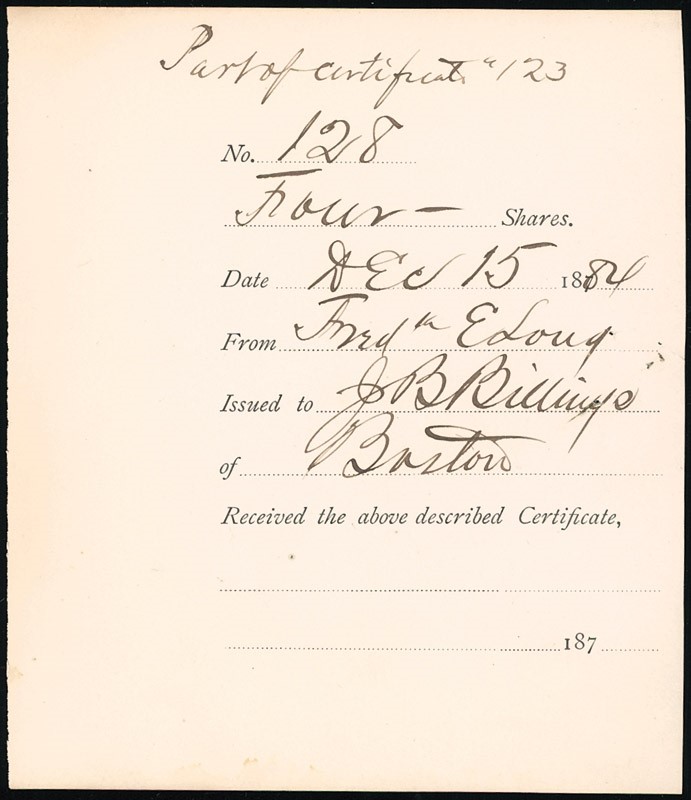 Part of certificate "123
No. 128
Four — Shares.
Date DEC 15 1884
From Fredk E Long
Issued to J B Billings
of Boston
Received the above described Certificate,
187